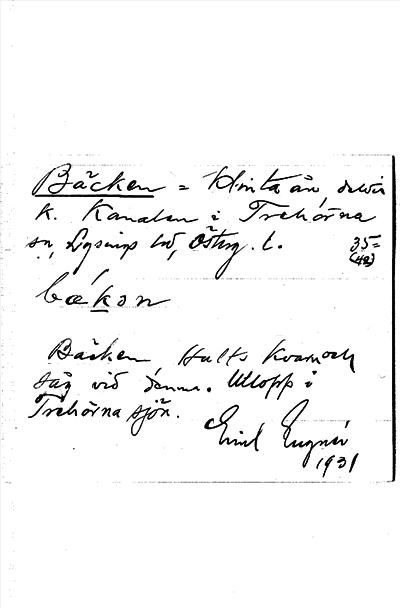 Bäcken = Hinta ån, delvis
k. Kanalen i Trehörna
sn, Lysings hd, Österg. l. 35=
(42)
bækən
Bäcken, Hults kvarn och
såg vid denna. Utlopp i
Trehörna sjön.
Emil
1931